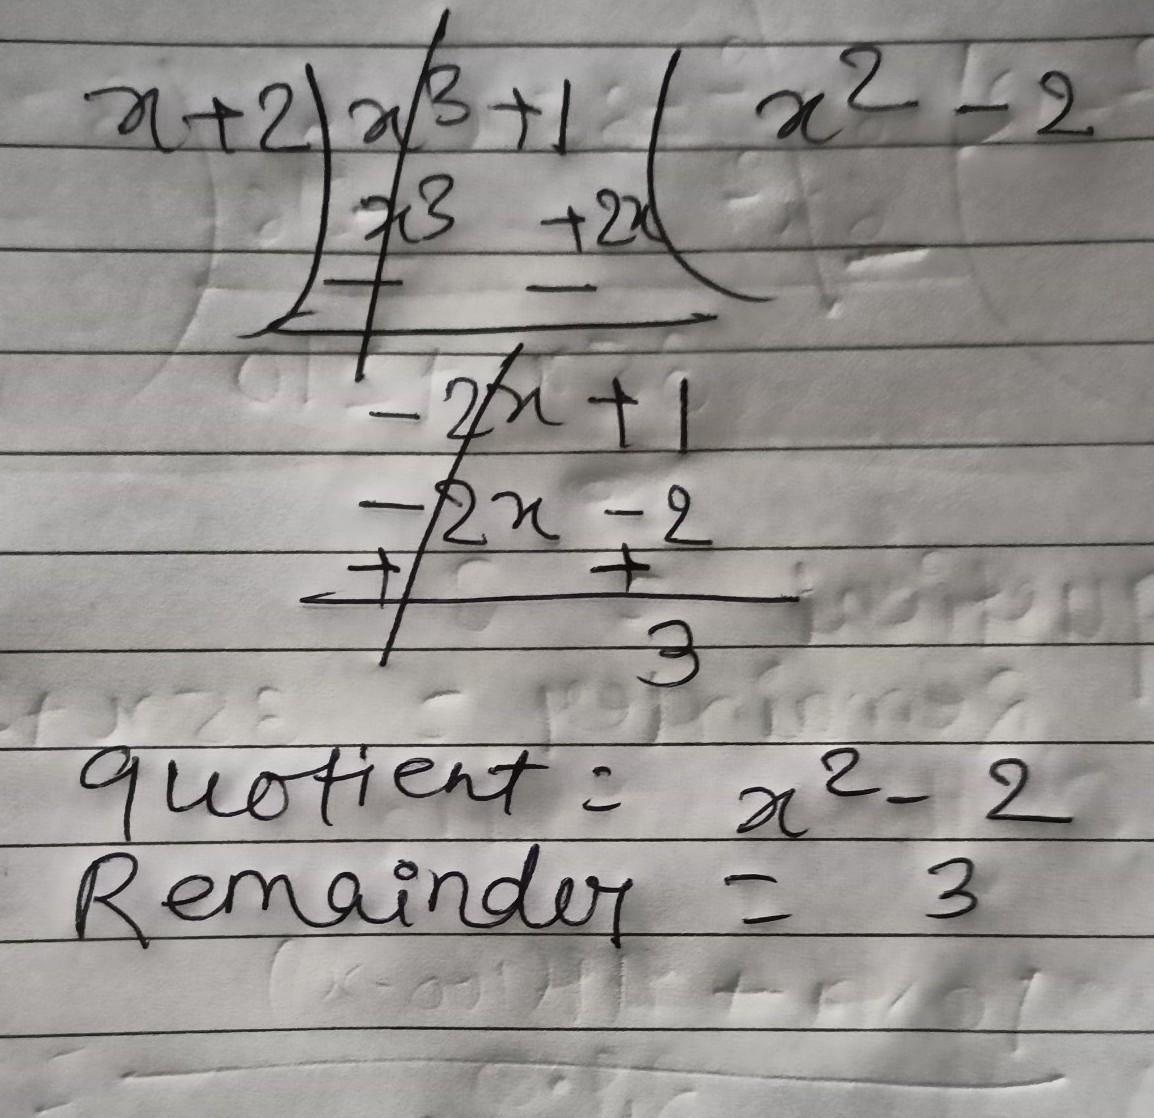 x+2) x³ +1 ( x² - 2
x³ +2x
- -
-2x + 1
-2x - 2
+ +
3
quotient = x² - 2
Remainder = 3